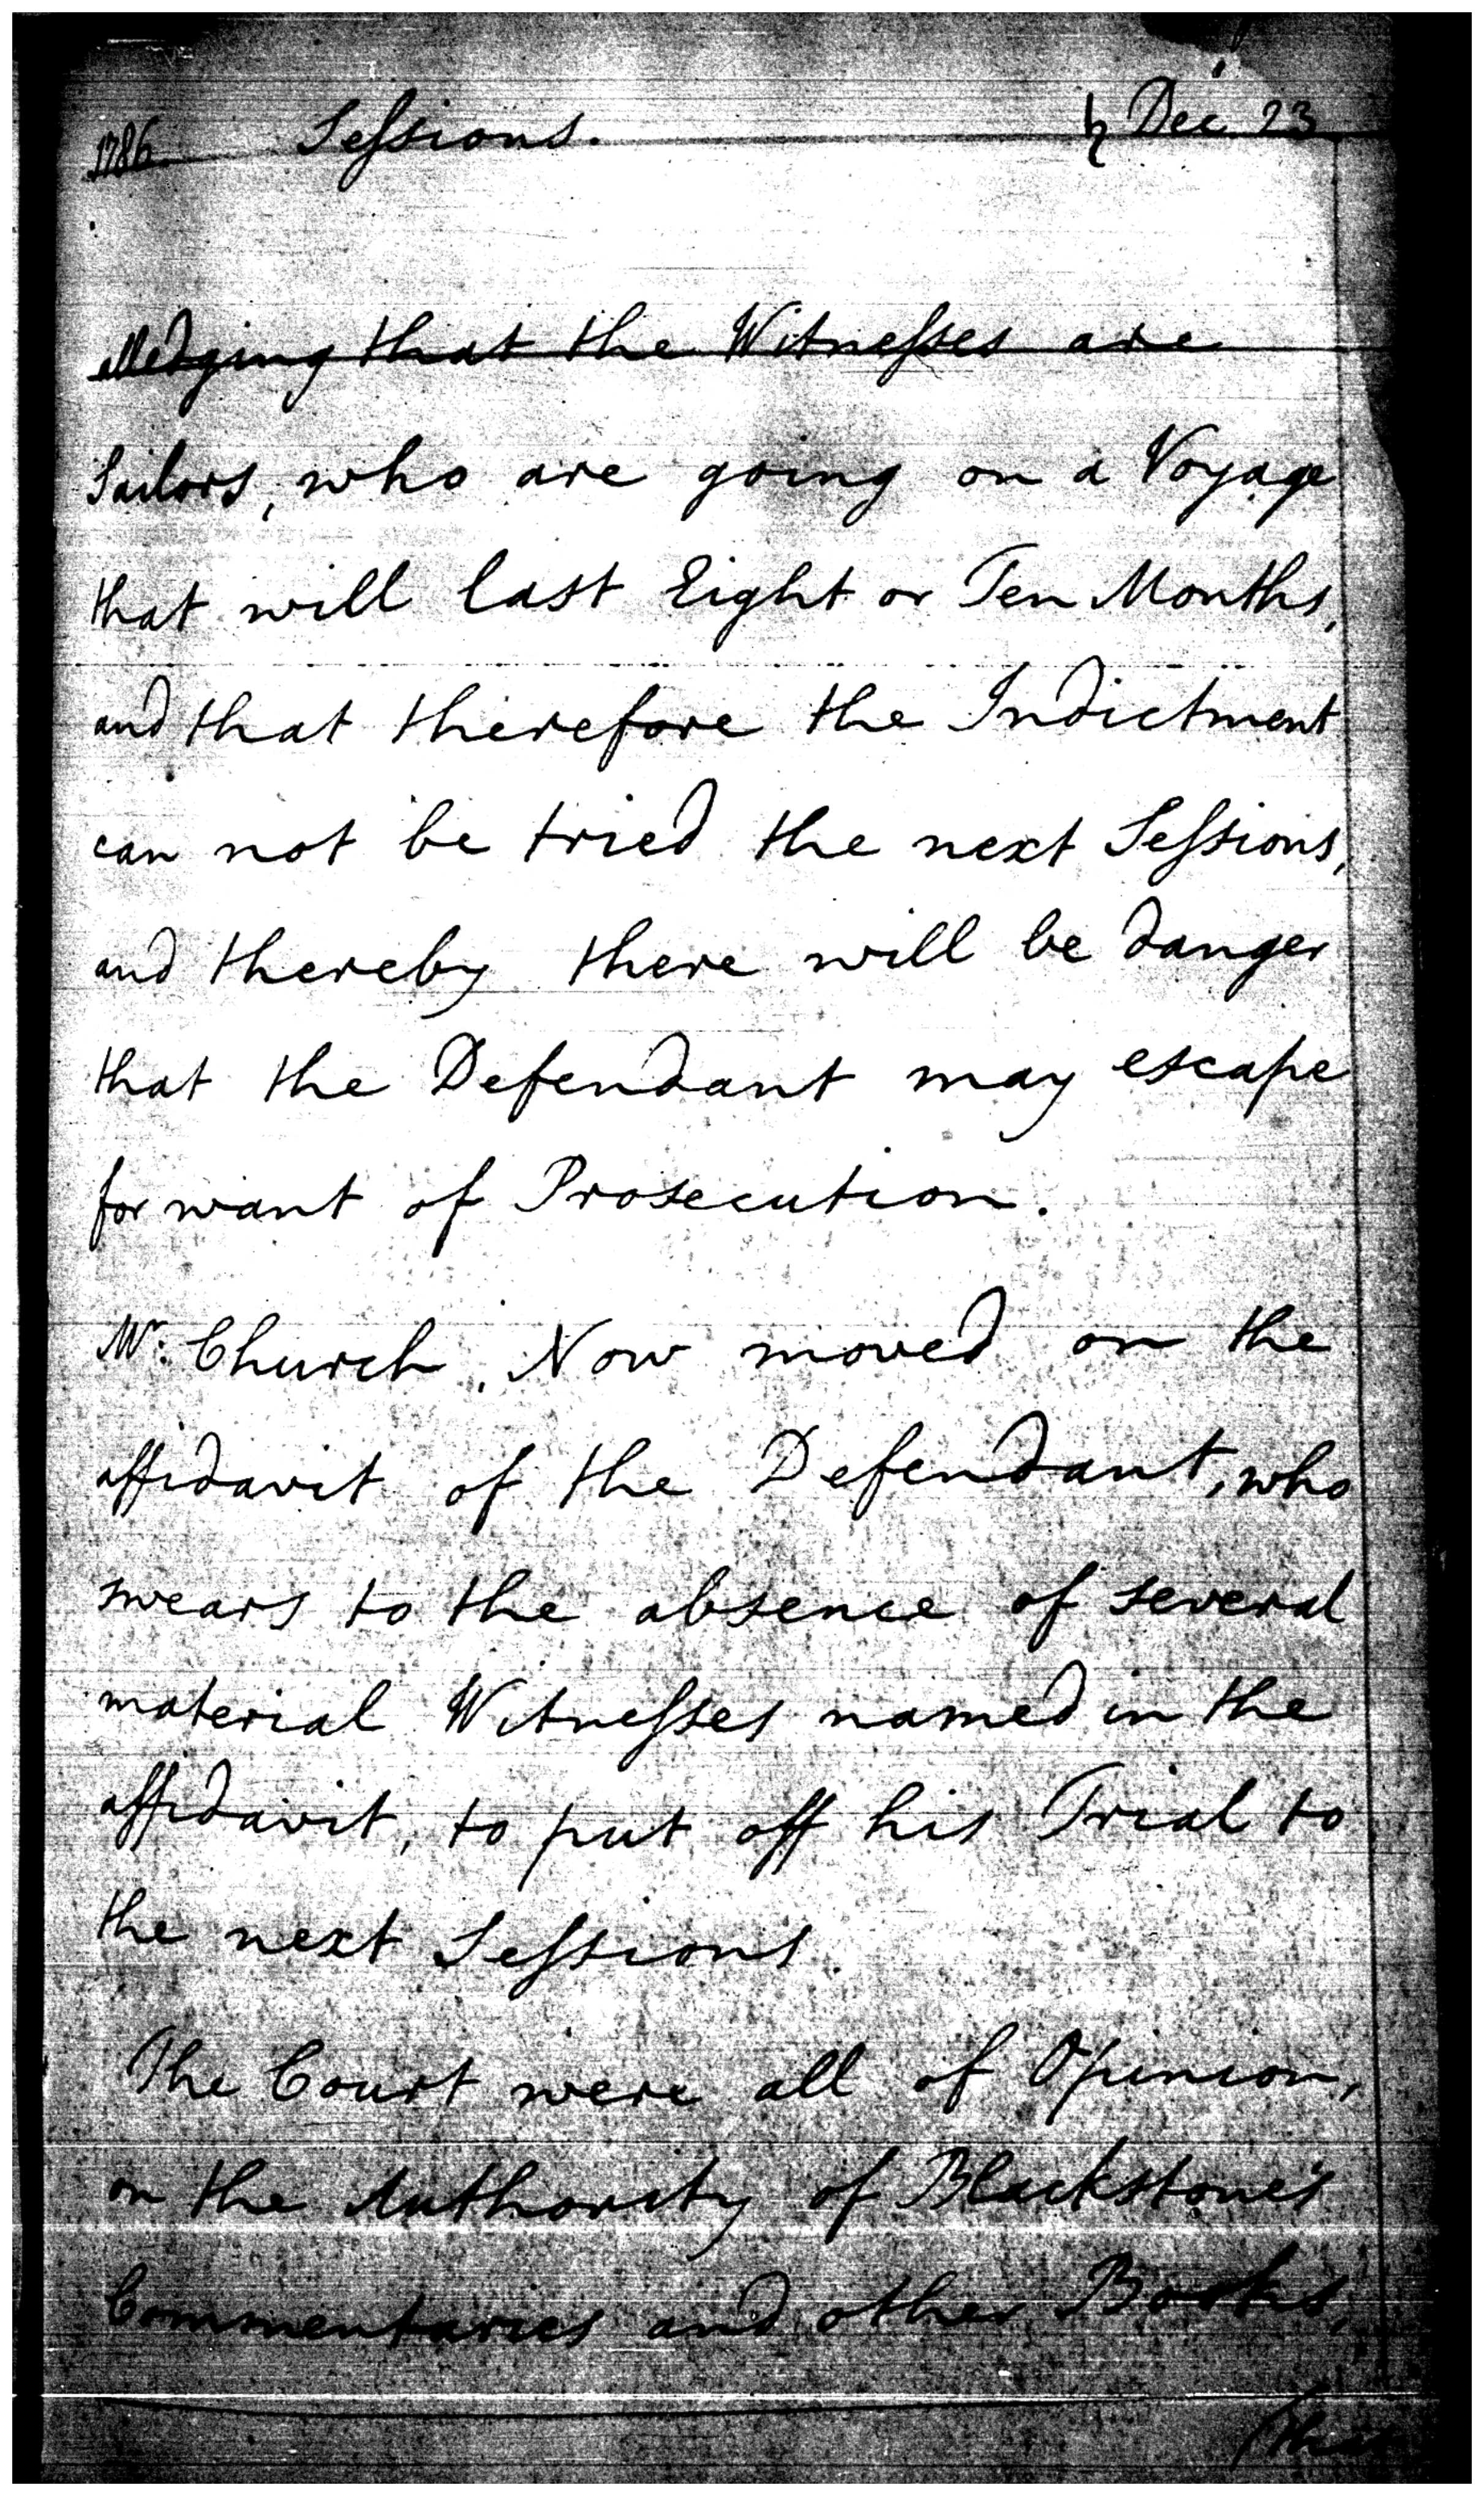 1786. Sessions. ♄ Dec. 23
alledging that the Witnesses are
Sailors, who are going on a Voyage
that will last Eight or Ten Months,
and that therefore the Indictment
can not be tried the next Sessions,
and thereby there will be danger
that the Defendant may escape
for want of Prosecution.
Mr. Church. Now moved on the
affidavit of the Defendant, who
swears to the absence of several
material Witnesses named in the
affidavit, to put off his Trial to
the next Sessions.
The Court were all of Opinion,
on the Authority of Blackstone's
Commentaries and other Books,